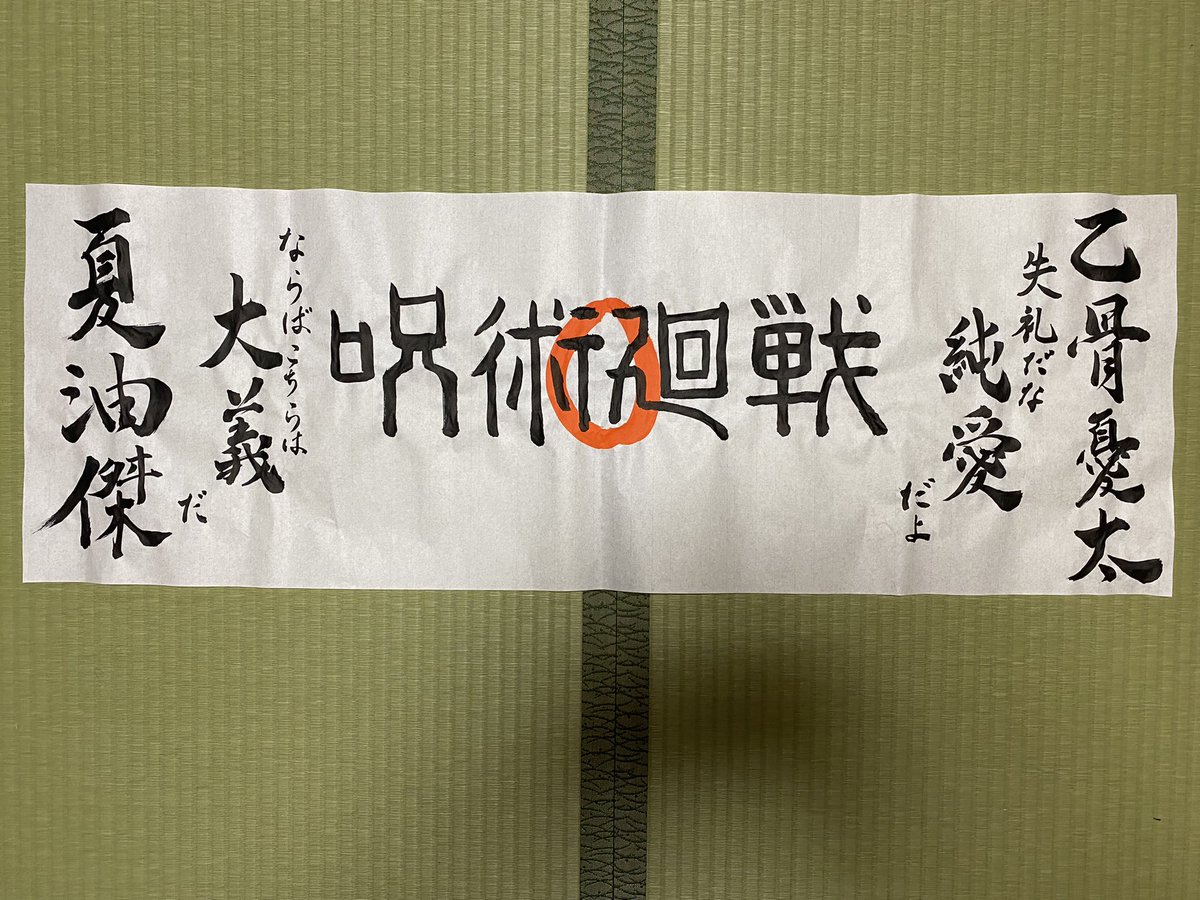 乙骨憂太
失礼だな
純愛
だよ
呪術廻戦
0
ならばこちらは
大義
だ
夏油傑